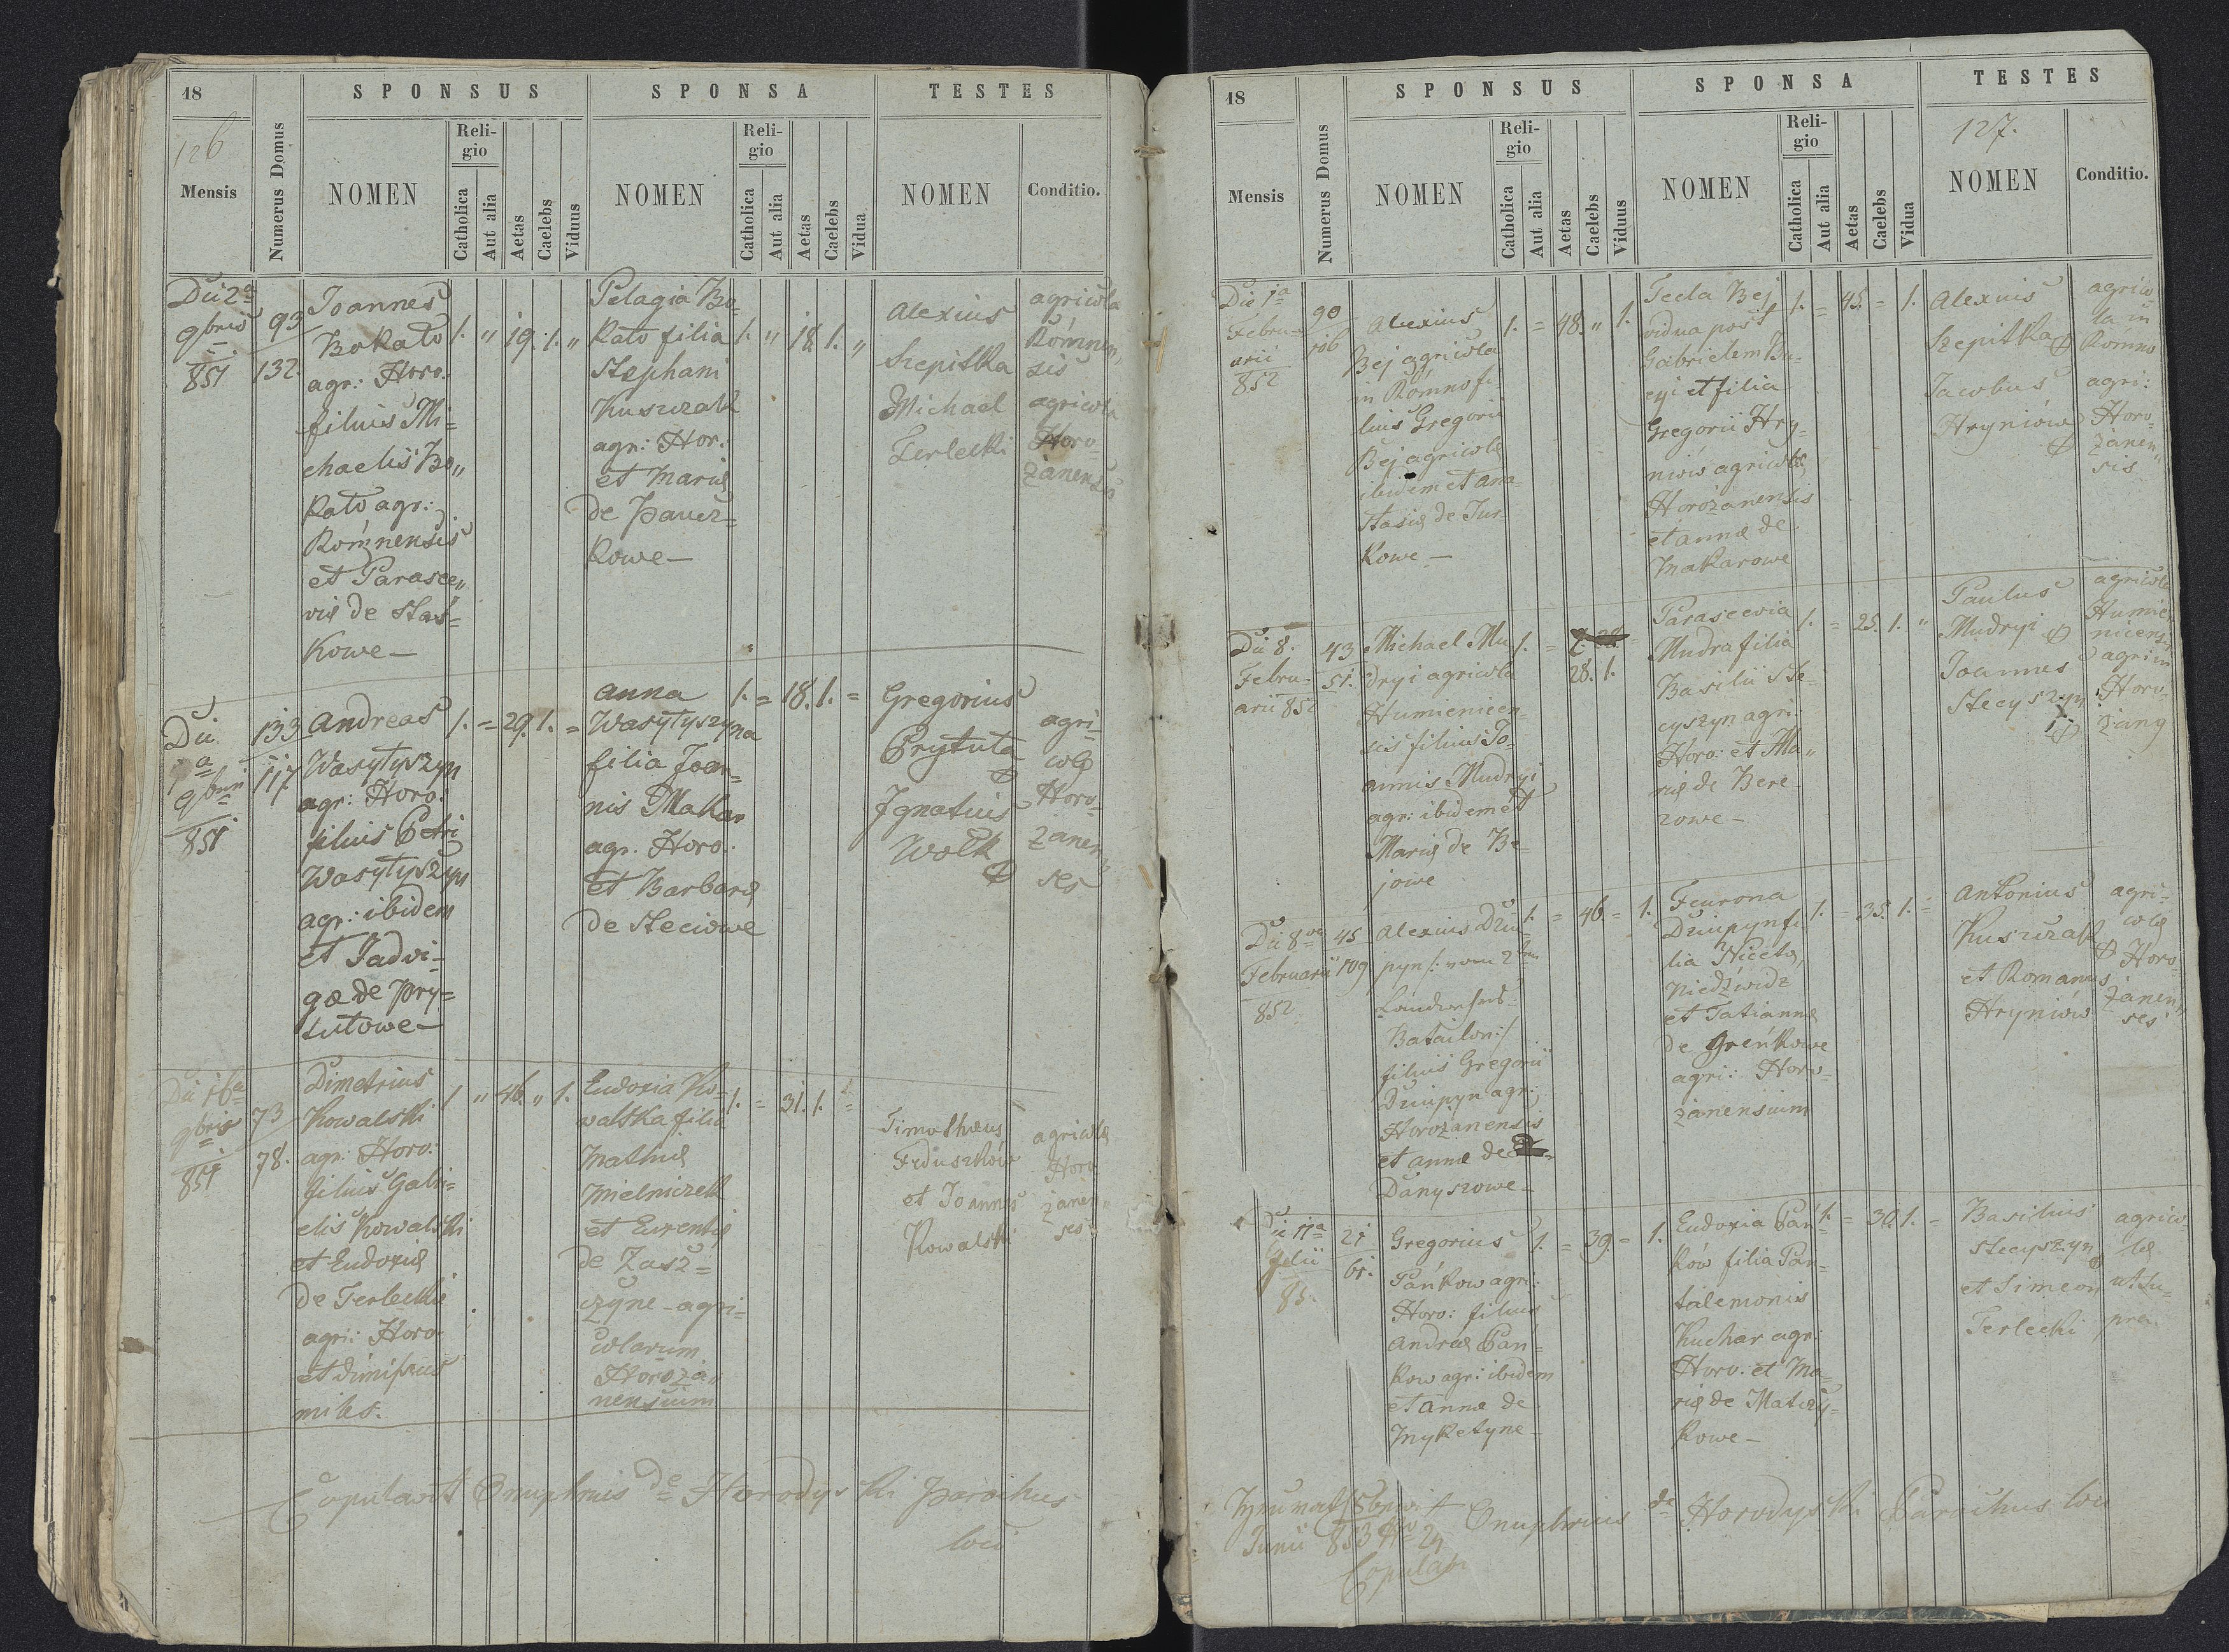 18
SPONSUS
SPONSA
TESTES
126
Mensis
Numerus Domus
NOMEN
Reli-
gio
Catholica
Aut alia
Aetas
Caelebs
Viduus
NOMEN
Reli-
gio
Catholica
Aut alia
Aetas
Caelebs
Vidua
NOMEN
Conditio.
Die 2a
9bris
851
93
132.
Joannes
Bokało
agr: Horo:
filius Mi=
chaelis Bo„
kało agr:
Rómnensis
et Parasce„
viæ de Staś=
kowe —
1. „ 19. 1. „
Pelagia Bo
kało filia
Stephani
Kuszczak
agr: Hor:
et Mariæ
de Pawez=
kowe —
1. „ 18. 1. „
Alexius
Szepitka
Michael
Terlecki
agricola
Rómnen„
sis
agricola
Horo
żanensis
Die
a
9bris
851
133
117
Andreas
Wasyłyszyn
agr: Horo:
filius Petri
Wasyłyszyn
agr: ibidem
et Jadvi=
gæ de Pry=
tułowe —
1. = 29. 1. =
Anna
Wasyłyszyna
filia Joan=
nis Makar
agr. Horo:
et Barbaræ
de Steciowe
1. = 18. 1. =
Gregorius
Prytuła
Ignatius
Wołk
agri=
colæ
Horo=
żanen„
ses
Die 16a
9bris
851
73
78.
Dimetrius
Kowalski
agr: Horo:
filius Gabri=
elis Kowalski
et Eudoxiæ
de Terleckie
agri: Horo
et dimissus
miles.
1 „ 46. „ 1.
Eudoxia Ko=
walska filia
Mathiæ
Mielniczek
et Eurentiæ
de Zasz=
czyne - agri=
colarum
Horoża„
nensium
1. = 31. 1. =
Timotheus
Feduszków
et Joannes
Kowalski
agricolæ
Horo
żanen=
ses
Copulavit Onuphrius de Horodyski parochus
loci
18
SPONSUS
SPONSA
TESTES
127.
Mensis
Numerus Domus
NOMEN
Reli-
gio
Catholica
Aut alia
Aetas
Caelebs
Viduus
NOMEN
Reli-
gio
Catholica
Aut alia
Aetas
Caelebs
Vidua
NOMEN
Conditio.
Die 1a
Febru=
arii
852
90
106
Alexius
Bej agricola
in Rómno fi=
lius Gregorii
Bej agricolæ
ibidem et Ana=
stasiæ de Jus=
kowe —
1. = 48. „ 1.
Tecla Bej
vidua post
Gabrielem
et filia
Gregorii Hry=
niów agricolæ
Horożanensis
et Annæ de
Makarowe
1. = 45. = 1.
Alexius
Szepitka
Jacobus
Hryniów
agrico
la in
Rómno
agri:
Horo=
żanen„
sis
Die 8.
Febru=
arii 852
43
51.
Michael Mu
dryi agricola
Humienicen=
sis filius Jo=
annis Mudryi
agr: ibidem et
Mariæ de Be=
jowe
1. =
28. 1.
Parascevia
Mudra filia
Basilii Ste=
cyszyn agri:
Horo: et Ma„
riæ de Bere=
zowe —
1. = 25. 1. „
Paulus
Mudryi
Joannes
Stecyszyn
agricola
Humie
nicens:
agri in
Horo=
żany
Die 8va
Februarii
852
45
109
Alexius Dziu=
pyn /: vom 2ten
Landwehrs=
Batailon:/
filius Gregorii
Dziupyn agr:
Horożanensis
et Annæ de
Danyszowe —
1. = 46. = 1.
Fevrona
Dziupyn fi
lia Nicetæ
Niedźwidz
et Tatiannæ
de Greńkowe
agri: Horo=
żanensium
1. = 35. 1. =
Antonius
Kuszczak
et Romanus
Hryniów
agri=
colæ
Horo=
żanen„
ses
Die 11a
Julii
85
21
61.
Gregorius
Pańkow agri:
Horo: filius
Andreæ Pań=
kow agri: ibidem
et Annæ de
Myketyne —
1. = 39. = 1.
Eudoxia Pań
ków filia Pan=
talemonis
Kuchar agr:
Horo: et Ma=
riæ de Matczy=
kowe —
1. = 30. 1. =
Basilius
Stecyszyn
et Simeon
Terlecki
agrico=
læ
ut su=
pra.
Onuphrius de Horodyski Parochus loci
Junii 853 No 24